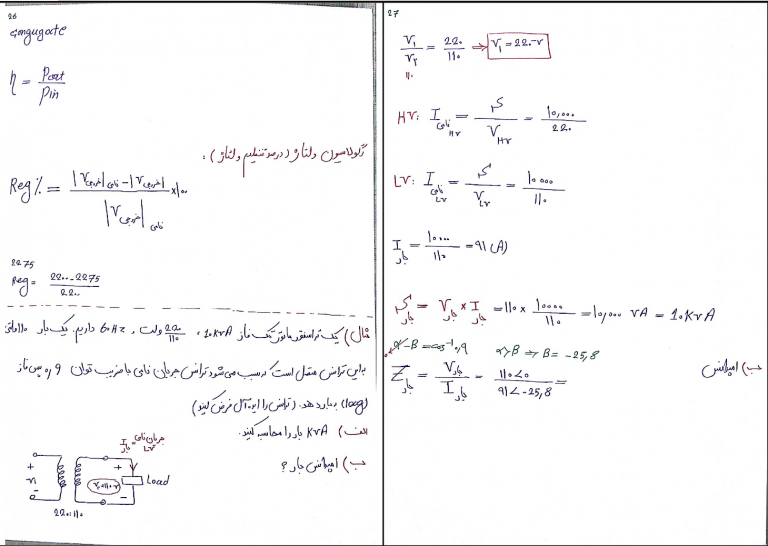 26
congugate
η = Pout / Pin
رگولاسیون ولتاژ (درصد تنظیم ولتاژ) :
Reg % = |V خروجی| نامی - |V خروجی| / |V خروجی| نامی × 100
2275
Reg = 2200 - 2275 / 2200
مثال) یک ترانسفورماتور تک فاز 10 KVA ، 220/110 ولت ، 60 Hz داریم. یک بار 110 ولتی
به این ترانس متصل است که سبب می شود ترانس جریان نامی با ضریب توان 0,9 پس فاز
(lag) به بار دهد. (ترانس را ایده آل فرض کنید)
الف) KVA بار را محاسبه کنید.
ب) امپدانس بار ؟
I بار = جریان نامی LV
+
V1
-
+
V2 = 110 V
-
Load
220:110
27
V1 / V2 = 220 / 110 ⇒ V1 = 220 V
110
HV: I نامی HV = S / V HV = 10,000 / 220
LV: I نامی LV = S / V LV = 10000 / 110
I بار = 10000 / 110 = 91 (A)
S بار = V بار × I بار = 110 × 10000 / 110 = 10,000 VA = 10 KVA
α - B = cos⁻¹ 0,9 α > B ⇒ B = -25,8
ب) امپدانس
Z بار = V بار / I بار = 110∠0 / 91∠-25,8 =